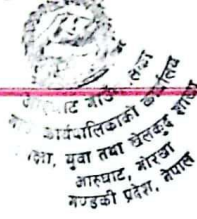 आरुघाट गाउँ
गाउँ कार्यपालिकाको कार्यालय
शिक्षा, युवा तथा खेलकुद शाखा
आरुघाट, गोरखा
गण्डकी प्रदेश, नेपाल